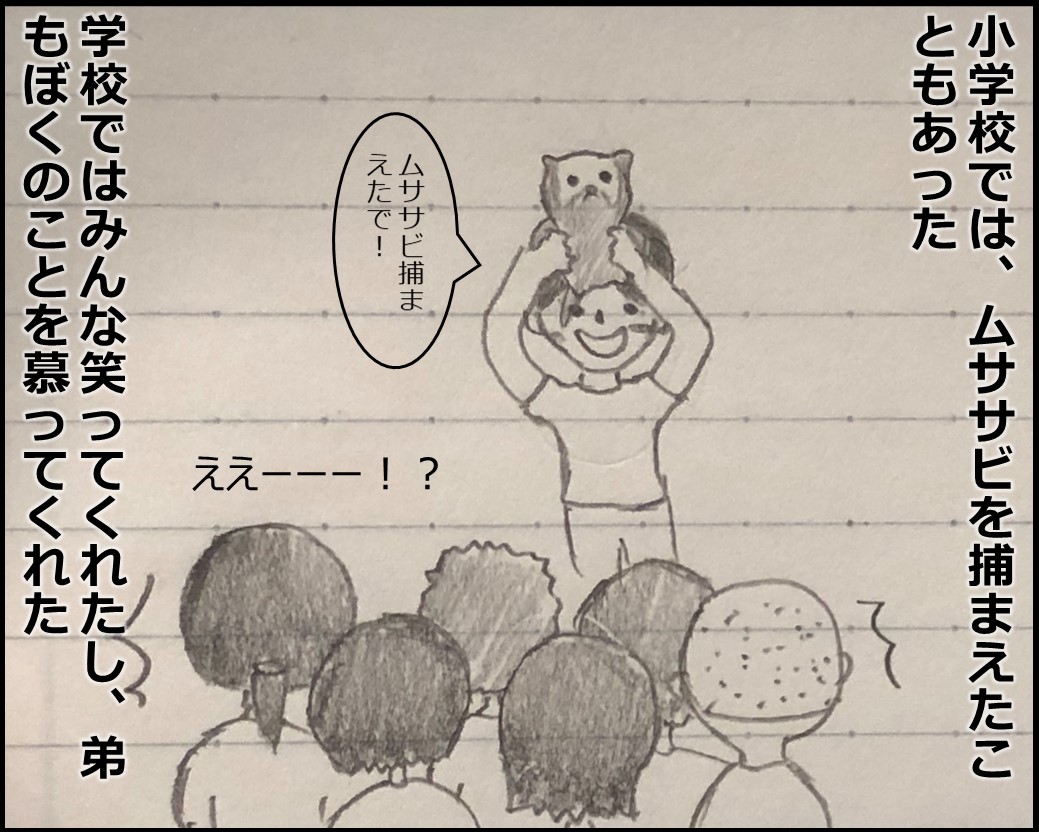 小学校では、ムササビを捕まえたこ
ともあった
ムササビ捕ま
えたで！
ええーーー！？
学校ではみんな笑ってくれたし、弟
もぼくのことを慕ってくれた